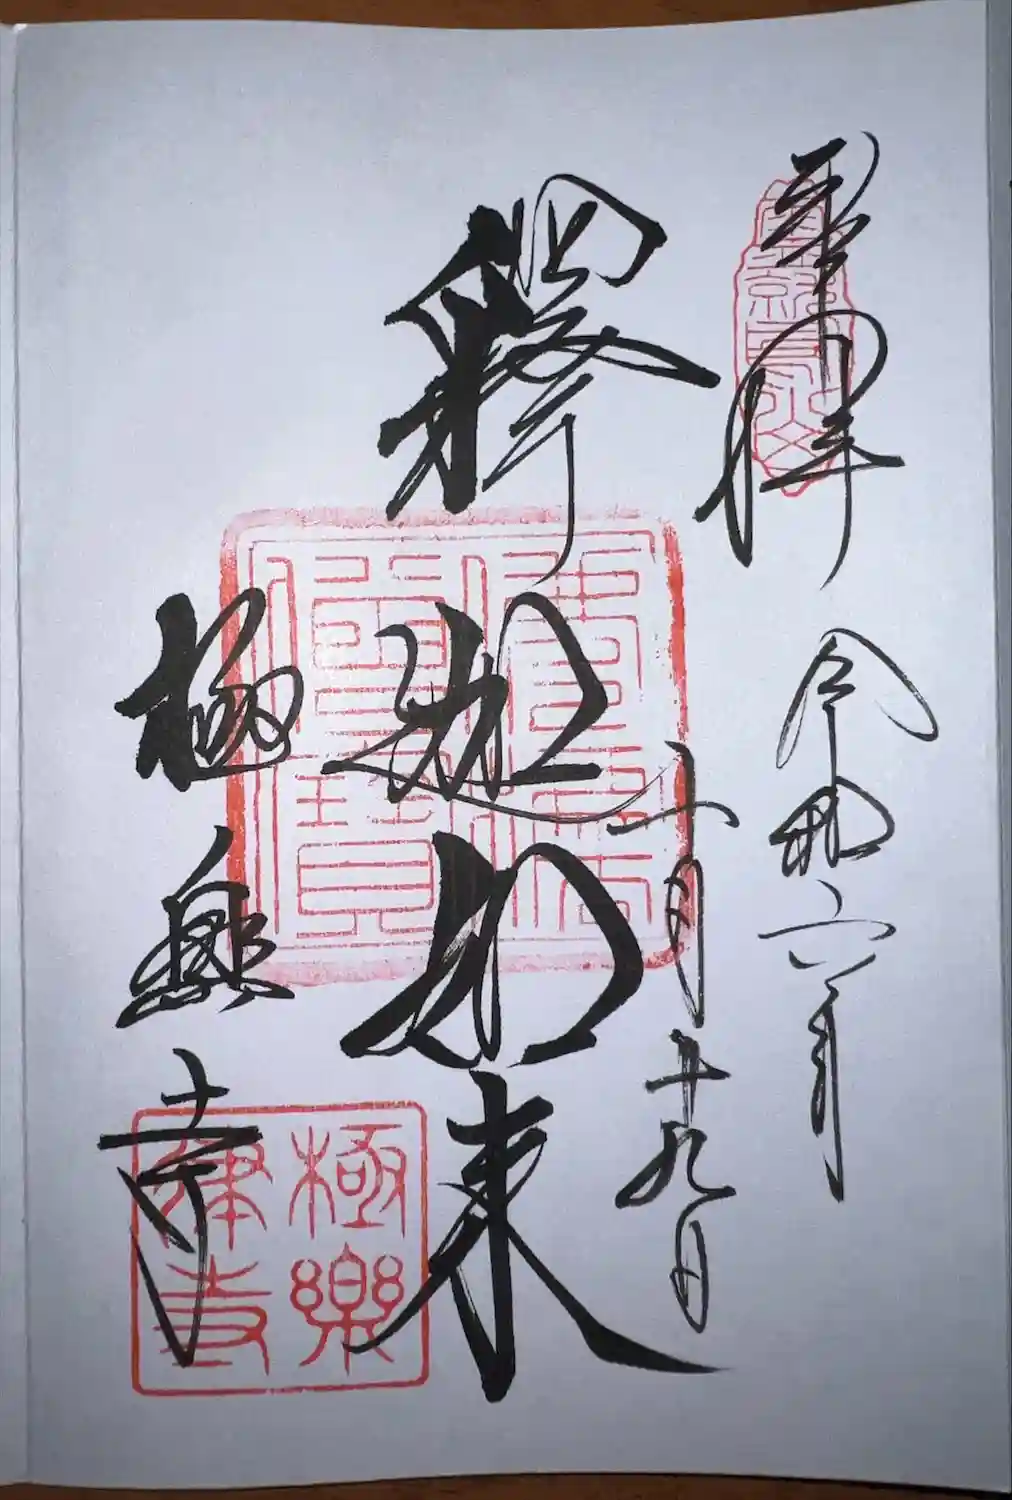 奉拝
令和六年
十月十九日
釋迦如来
極樂寺
佛法
僧寶
極樂
律寺